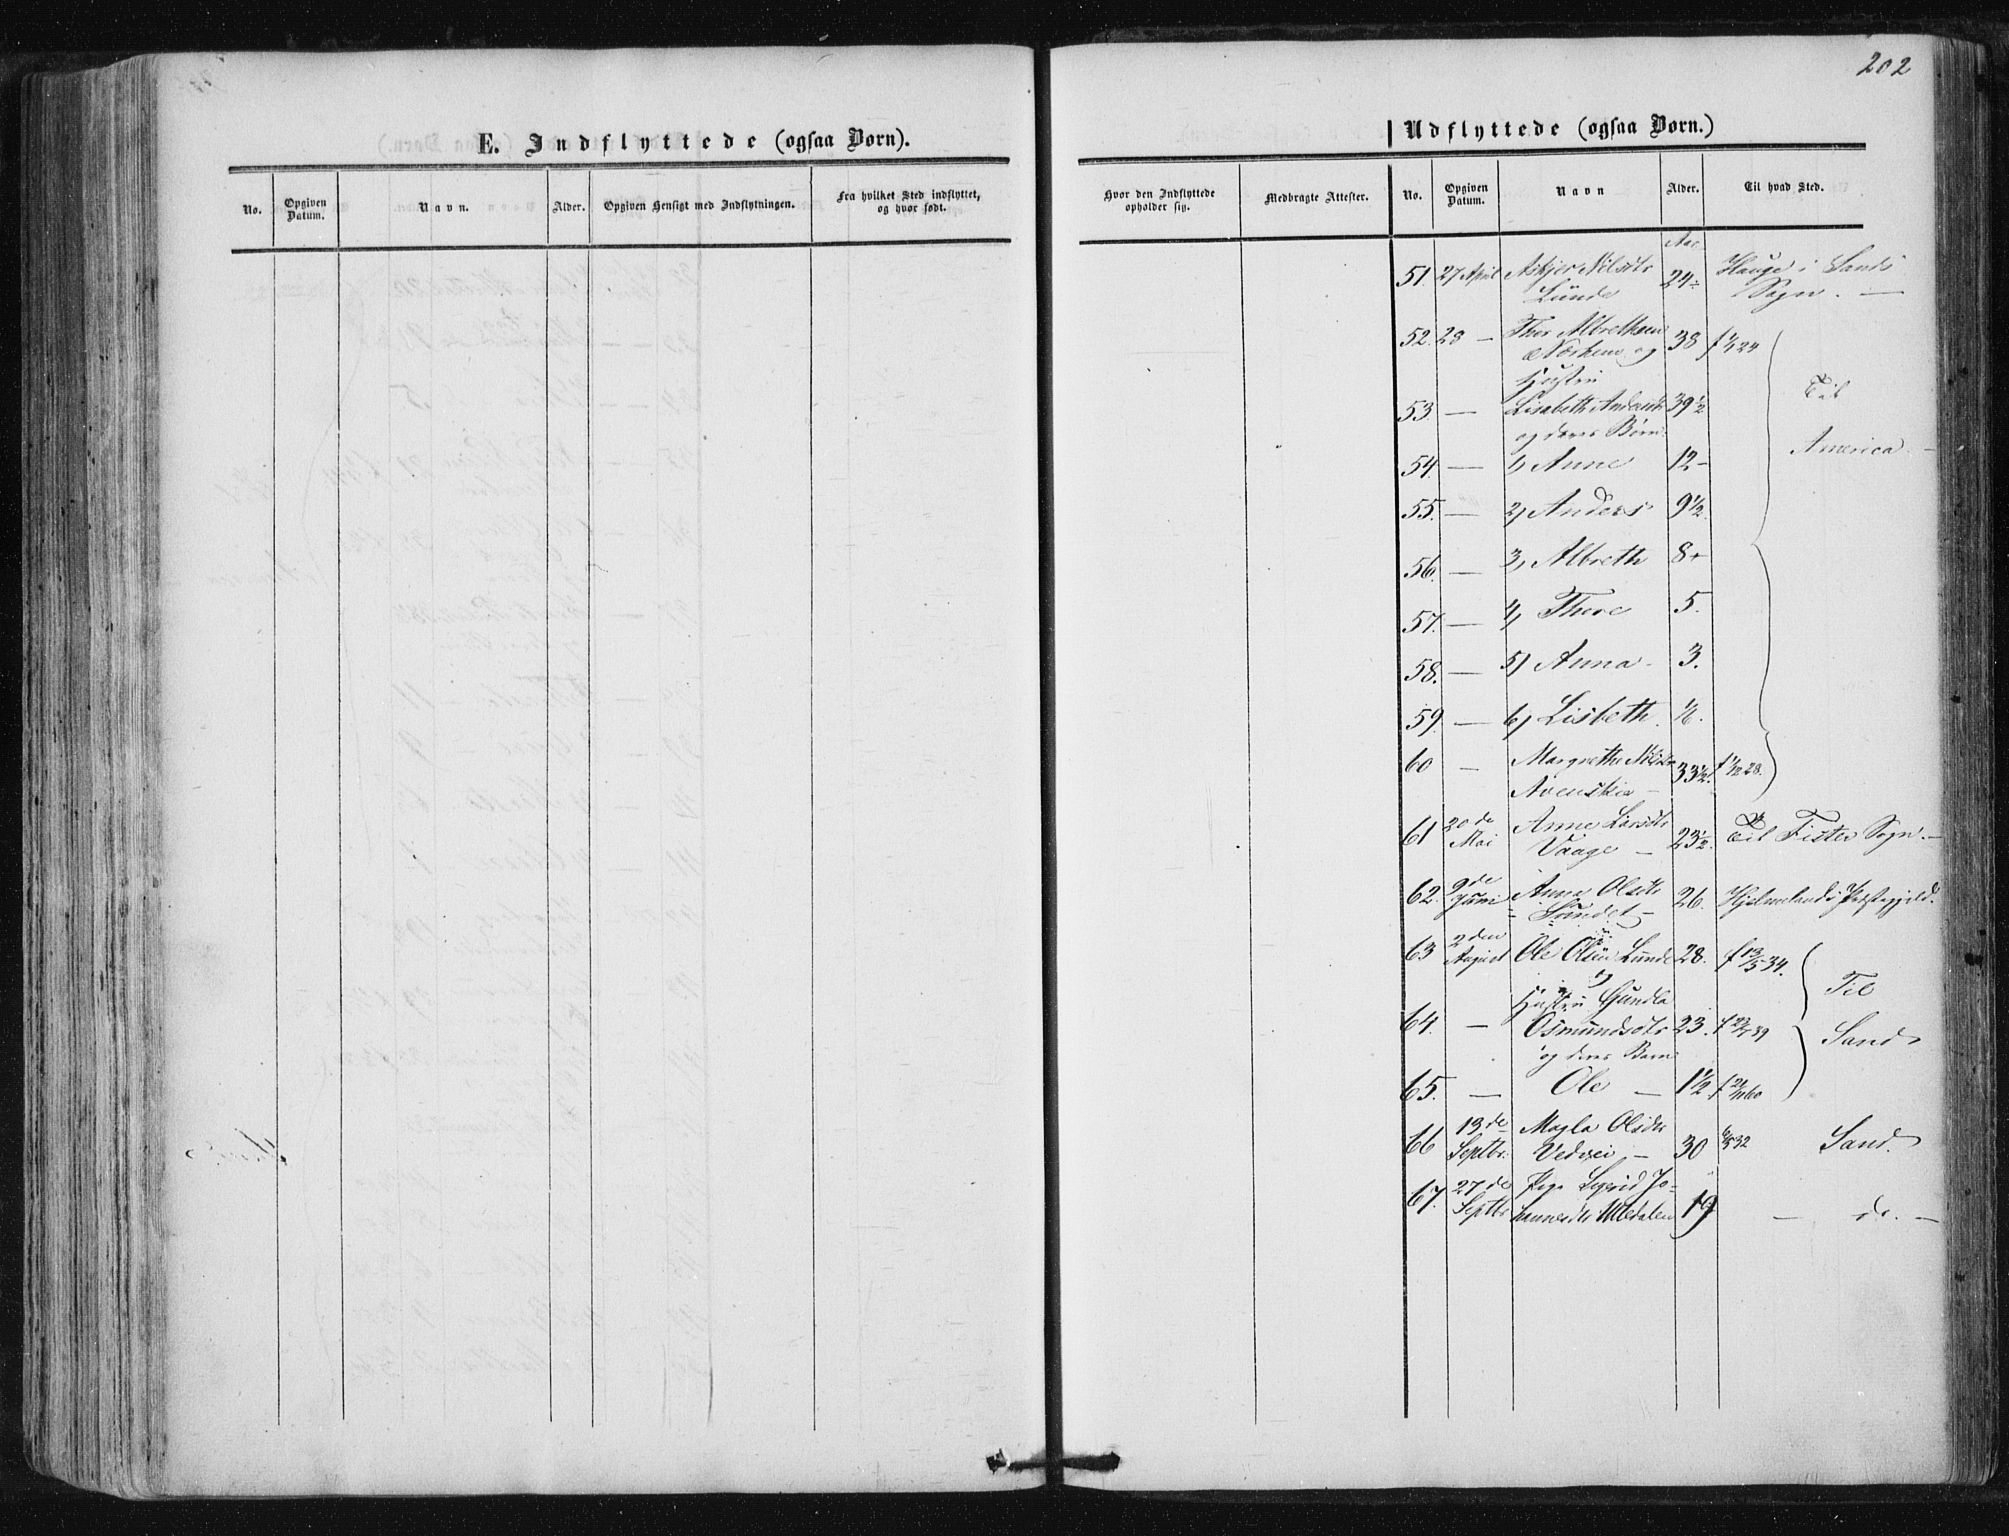 202
E. Indflyttede (ogsaa Børn).
No.
Opgiven Datum.
Navn.
Alder.
Opgiven Hensigt med Indflytningen.
Fra hvilket Sted indflyttet, og hvor født.
Udflyttede (ogsaa Børn.)
Hvor den Indflyttede opholder sig.
Medbragte Attester.
No.
Opgiven Datum.
Navn
Alder.
Til hvad Sted.
Aar
51. 27 April Askjer Nilsdtr 24 Hauge i Sands
Lunde Sogn. —
52. 28 — Thor Albrethsen 38
og
Hustru
53 — Lisabeth 39½
og deres Børn:
54. — 1) Anne 12 –
55. — 2) Anders 9½
56. — 3) Albreth 8
57. — 4) Thore 5.
58. — 5) Anna 3.
59. — 6) Lisbeth.
60 — Margrethe 33½.
Til
America. —
61 20de Mai Anne Larsdtr 23½. Til Fister Sogn. —
Vaage —
62. 9de Juni Anna Olsdtr 26. Hjelmelands Præstegjeld.
Sundet —
63 2den August Ole Olsen Lunde 28. f 13/5 34.
og
Hustru Gundla
64. — Osmundsdtr 23.
og deres Barn
65. — Ole — 1½
Til
Sand
66 13de Septbr. Magla Olsdtr 30 Sand.
—
67. 27de Septbr Pige Sigrid Jo-
hannesdtr 19 — do. —